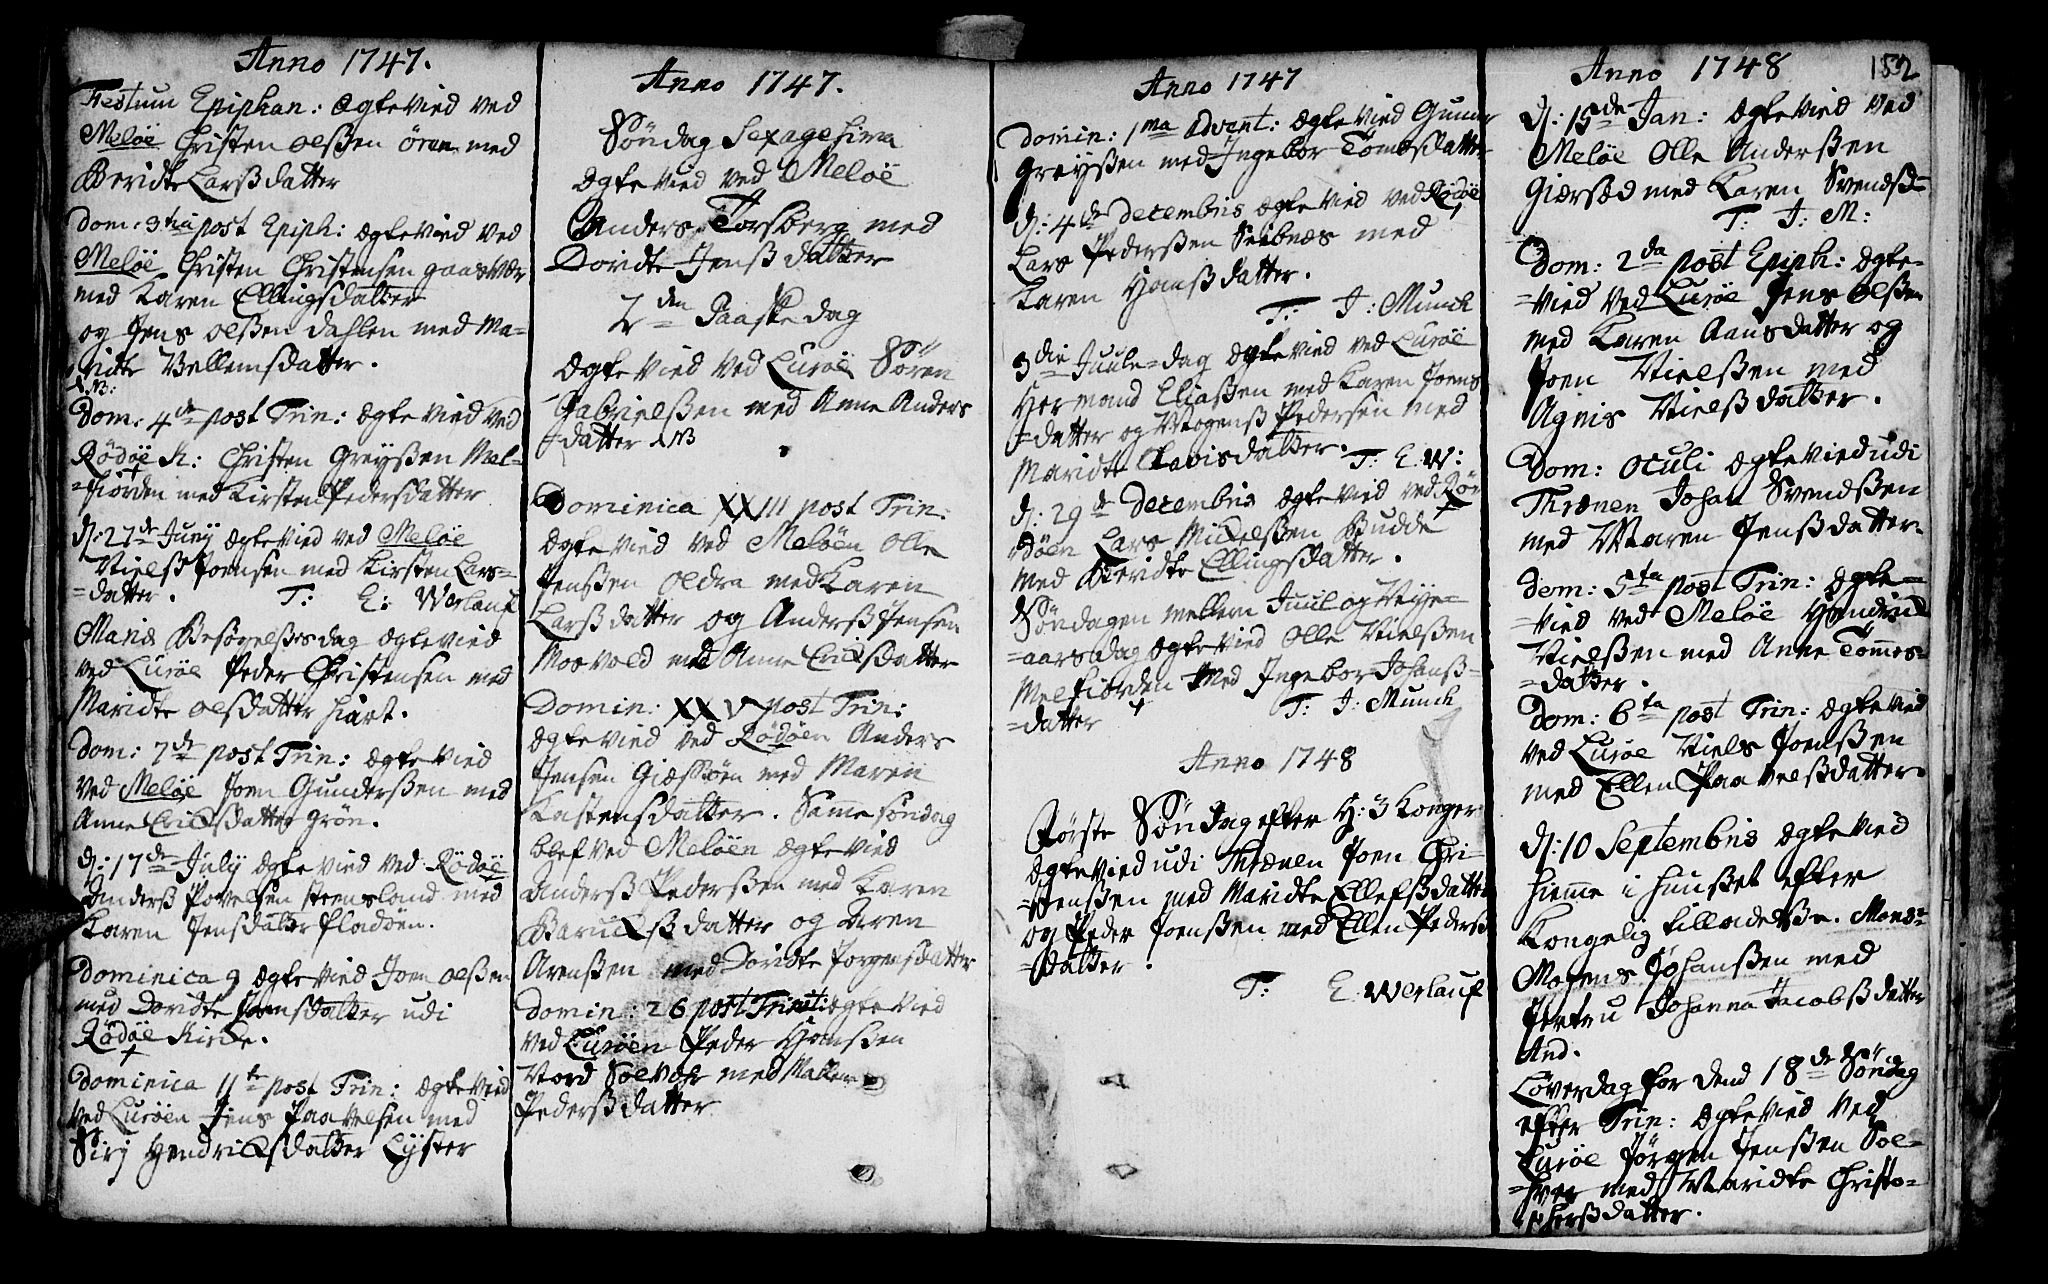 Anno 1747.
Festum Epiphan: Ægtevied ved
Meløe Christen Olsßen øren med
Beridte Larsßdatter
Dom: 3tia post Epiph: Ægtevied ved
Meløe Christen Christensen gaasvær
med Karen Ellingsdatter
og Jens Olsßen Dahlen med Ma-
ridte Vellemsdatter.
NB:
Dom: 4de post Trin: Ægtevied ved
Rødøe K: Christen Greysßen Mel-
=fiorden med Kirsten Pedersdatter
D: 27de Juny Ægtevied ved Meløe
Nielß Joensen med Kirsten Lars=
=datter. T: E: Werlauf
Mariæ Besøgelßesdag Ægtevied
ved Lurøe Peder Christensen med
Maridte Olsdatter Hiart.
Dom: 7de post Trin: Ægtevied
ved Meløe Joen Gundersßen med
Anne Ericksdatter Grøn.
D: 17de July Ægtevied ved Rødøe
Andersß Povelsen Stensland med
Karen Jensdatter Fladøen.
Dominica 9 Ægtevied Joen Olsßen
med Doridte Joensdatter udi
Rødøe Kirke.
Dominica 11te post Trin: Ægtevied
ved Lurøen Jens Paavelsen med
Siri Hendricksdatter Lyster
Anno 1747.
Søndag Sexagesima
Ægtevied ved Meløe
Anders Torsberg med
Doridte Jensßdatter
2den Paaske dag
Ægtevied ved Lurøe Søren
Gabrielsßen med Anne Anders
=datter NB
Dominica XXIII post Trin:
Ægtevied ved Meløen Olle
Jensßen Oldra med Karen
Larsßdatter og Andersß Jensen
Mosvold med Anne Ericksdatter
Domin: XXV post Trin:
Ægtevied ved Rødøen Anders
Jensen Giæsøen med Maren
Kastensdatter. Samme søndag
blef ved Meløen Ægtevied
Andersß Pedersßen med Karen
Baruckßdatter og Aren
Arensßen med Doridte Jørgensdatter
Domin: 26 post Trinit: Ægtevied
ved Lurøen Peder Hansßen
Nord Solvær med Malken
Pedersßdatter
Anno 1747
Domin: 1ma Advent: Ægtevied Gunder
Greysßen med Ingebor Tomesdatter
D: 4de Decembris Ægtevied ved Rødøe
Lars Pedersßen Selsnæs med
Karen Hansßdatter.
T: J: Munch
3die Juule=dag Ægtevied ved Lurøe
Hermand Eliasßen med Karen Joens
=datter og Mogensß Pedersen med
Maridte Clavisdatter.
T: E: W:
D: 29de Decembris Ægtevied ved Rø
døen Lars Mickelsßen Budde
med Beridte Ellingsdatter.
Søndagen mellem Juul og Nye=
=aarsdag Ægtevied Olle Nielsßen
Melfiorden med Ingebor Johansß=
=datter T: J: Munch
Anno 1748
Første Søndag efter H: 3 Konger
Ægtevied udi Thrænen Joen Chri-
=stensßen med Maridte Ellefsdatter
og Peder Joensßen med Ellen Pedersß
=datter.
T: E: Werlauf
Anno 1748
152
D: 15de Jan: Ægtevied ved
Meløe Olle Andersßen
Giersød med Karen Svendsd=
T: J: M:
Dom: 2da post Epiph: Ægte=
=vied ved Lurøe Jens Olsßen
med Karen Aansdatter og
Joen Nielsßen med
Agnis Nielsßdatter.
Dom: Oculi Ægtevied udi
Thrænen Johan Svendsßen
med Maren Jensßdatter
Dom: 5ta post Trin: Ægte=
=vied ved Meløe Hendrick
Nielsßen med Anne Tommes=
=datter.
Dom: 6ta post Trin: Ægtevied
ved Lurøe Niels Joensßen
med Ellen Paavelsßdatter
D: 10 Septembris Ægtevied
hiemme i huuset efter
Kongelig tilladelsße. Monsr
Mogens Johansßen med
Jertru Johanna Jacobsßdatter
And.
Løverdag for dend 18de Søndag
efter Trin: Ægtevied ved
Lurøe Jørgen Jensßen Sol=
=vær med Maridte Christo=
=phersßdatter.